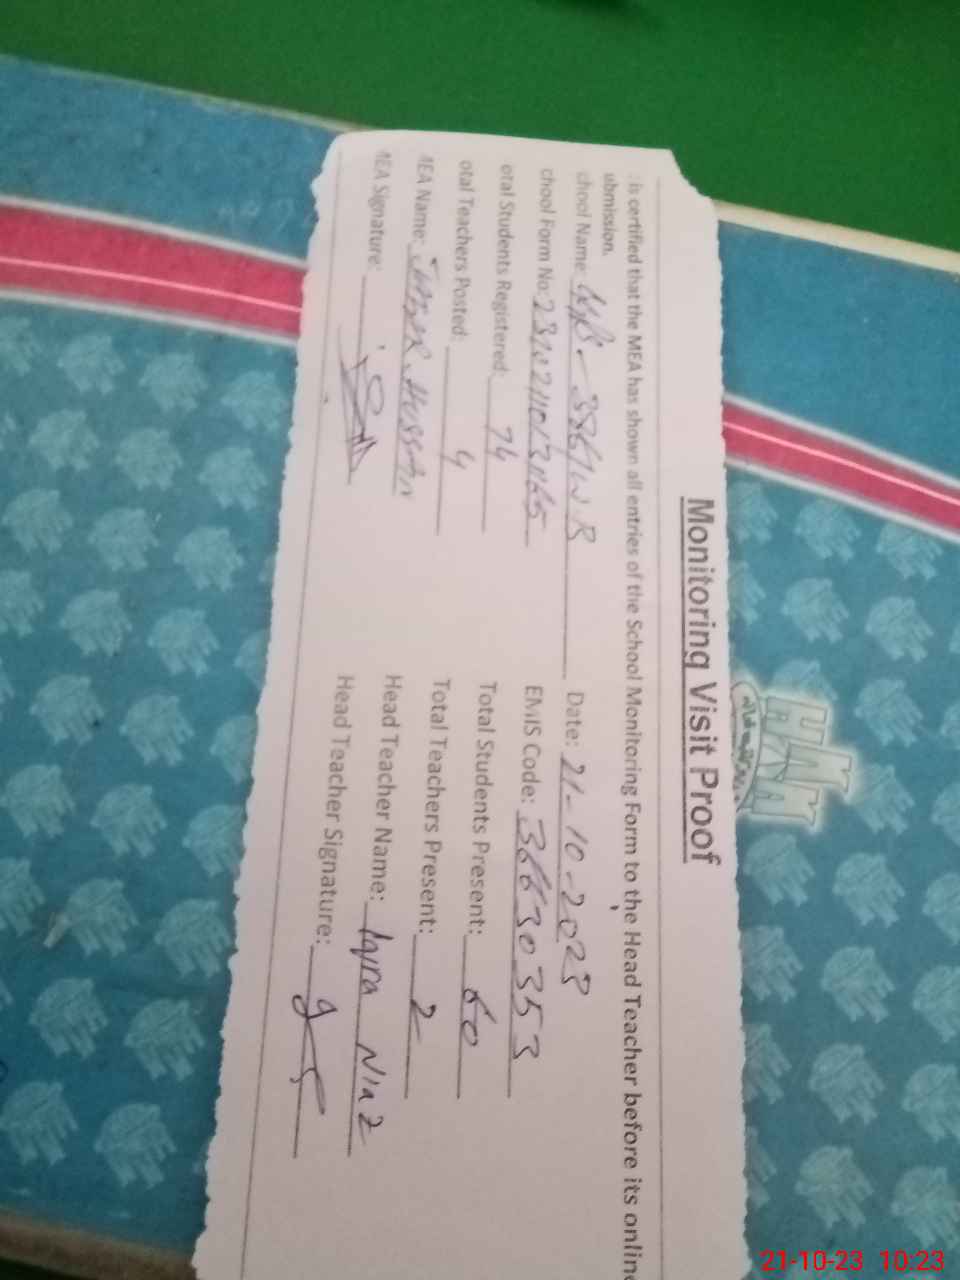 Monitoring Visit Proof
: is certified that the MEA has shown all entries of the School Monitoring Form to the Head Teacher before its online
ubmission.
chool Name: Date: 21-10-2023
chool Form No: EMIS Code: 36630353
otal Students Registered: 74 Total Students Present: 60
otal Teachers Posted: 4 Total Teachers Present: 2
MEA Name: Hussain Head Teacher Name: Iqra Niaz
MEA Signature: Head Teacher Signature:
21-10-23 10:23